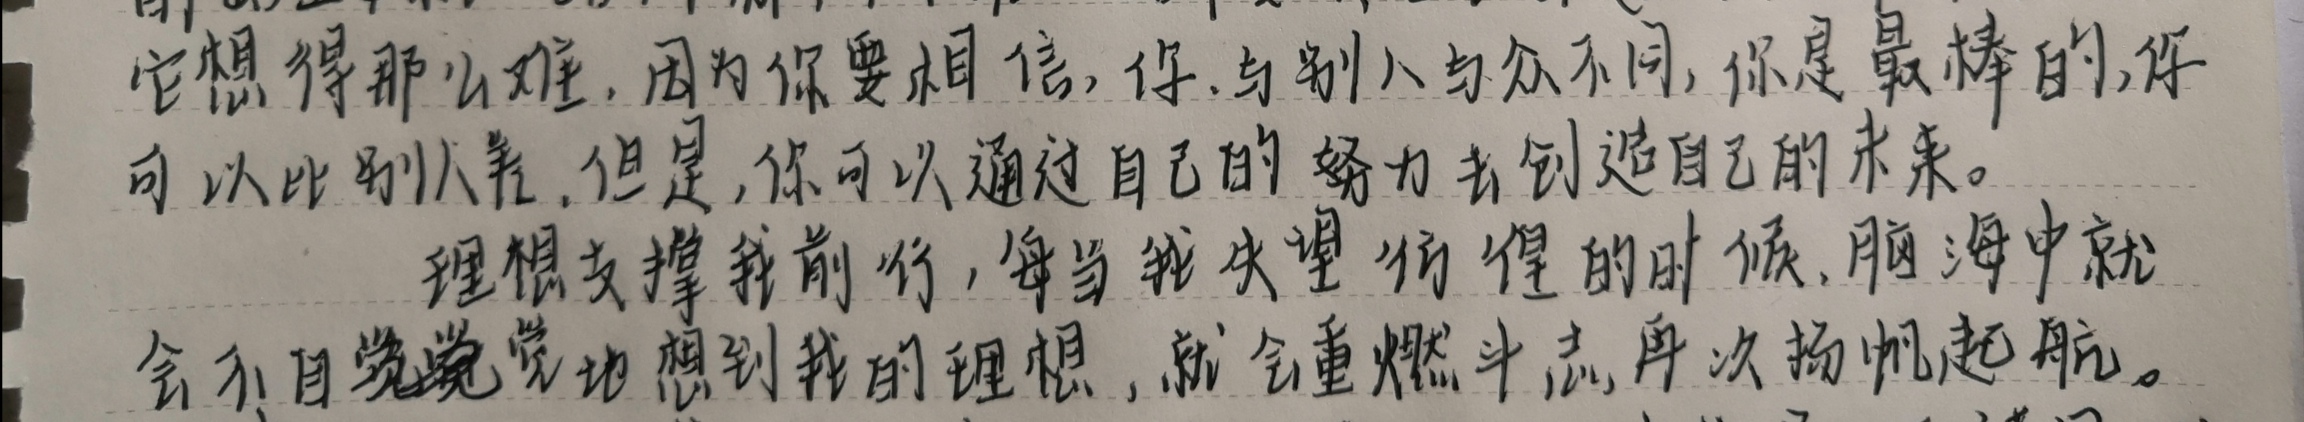 它想得那么难，因为你要相信，你，与别人与众不同，你是最棒的，你
可以比别人差，但是，你可以通过自己的努力去创造自己的未来。
理想支撑我前行，每当我失望彷徨的时候，脑海中就
会不自觉地想到我的理想，就会重燃斗志，再次扬帆起航。